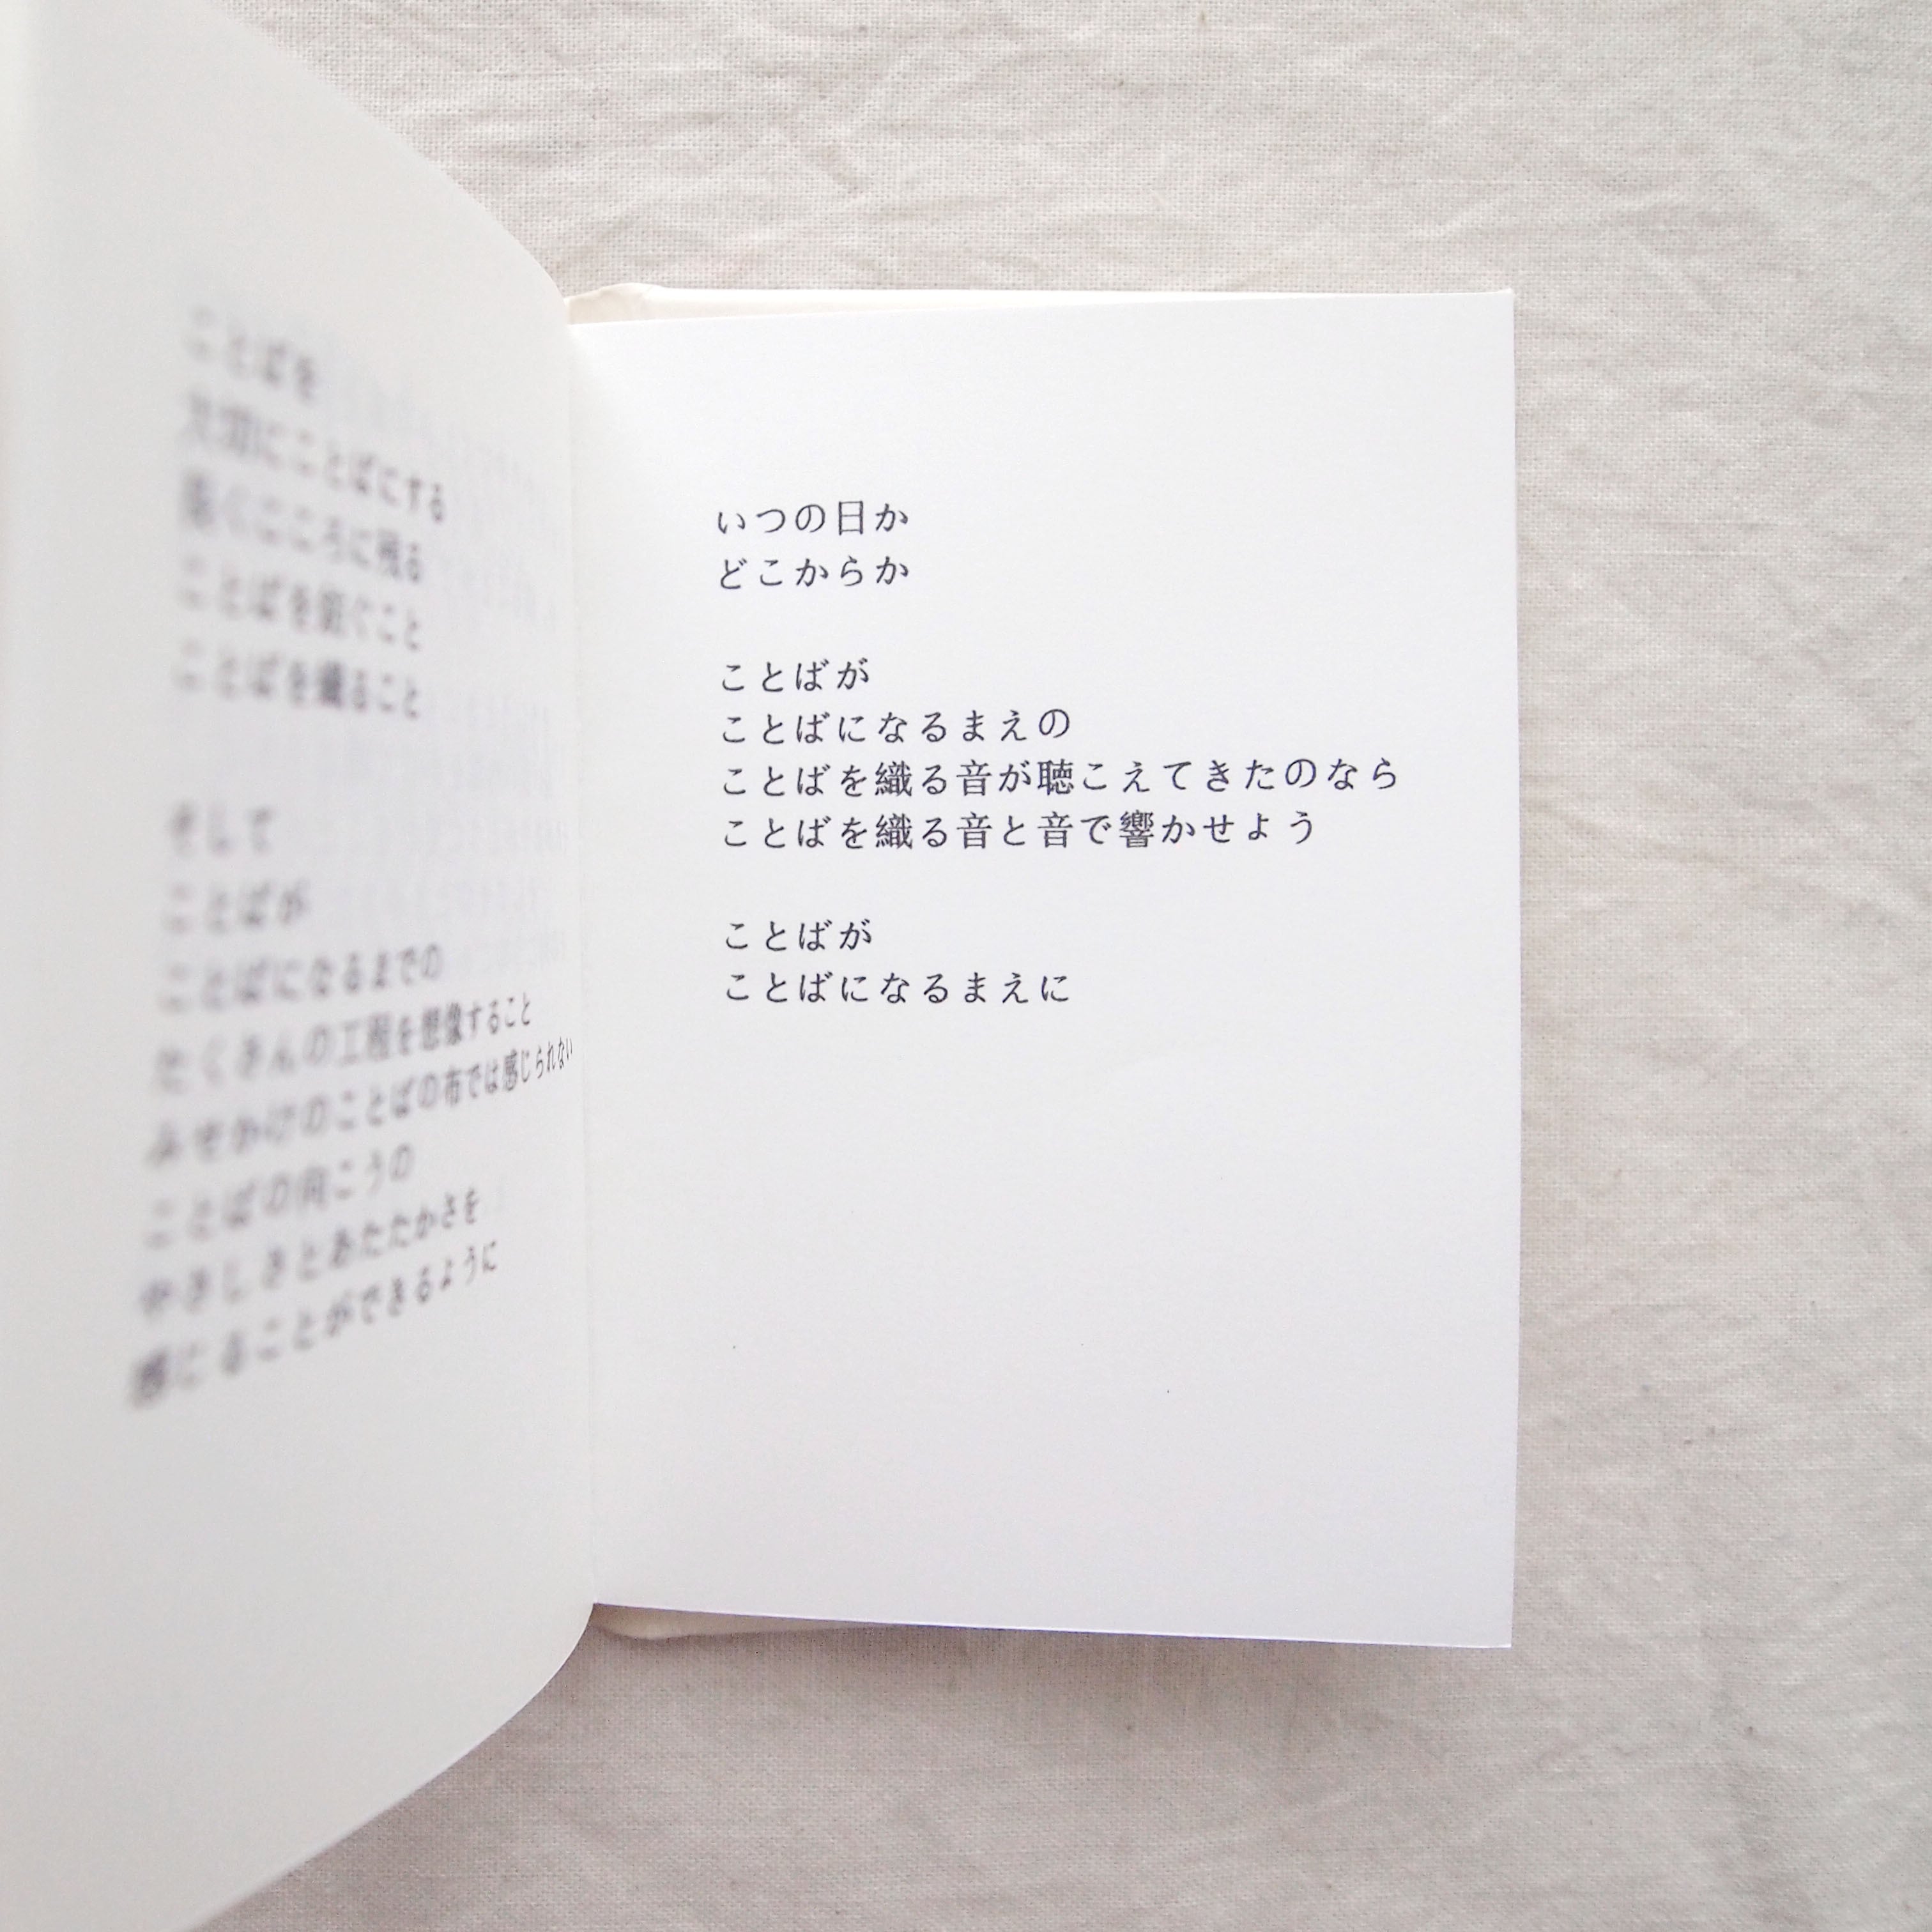 ことばを
大切にことばにする
深くこころに残る
ことばを紡ぐこと
ことばを織ること
そして
ことばが
ことばになるまでの
たくさんの工程を想像すること
みせかけのことばの布では感じられない
ことばの向こうの
やさしさとあたたかさを
感じることができるように
いつの日か
どこからか
ことばが
ことばになるまえの
ことばを織る音が聴こえてきたのなら
ことばを織る音と音で響かせよう
ことばが
ことばになるまえに